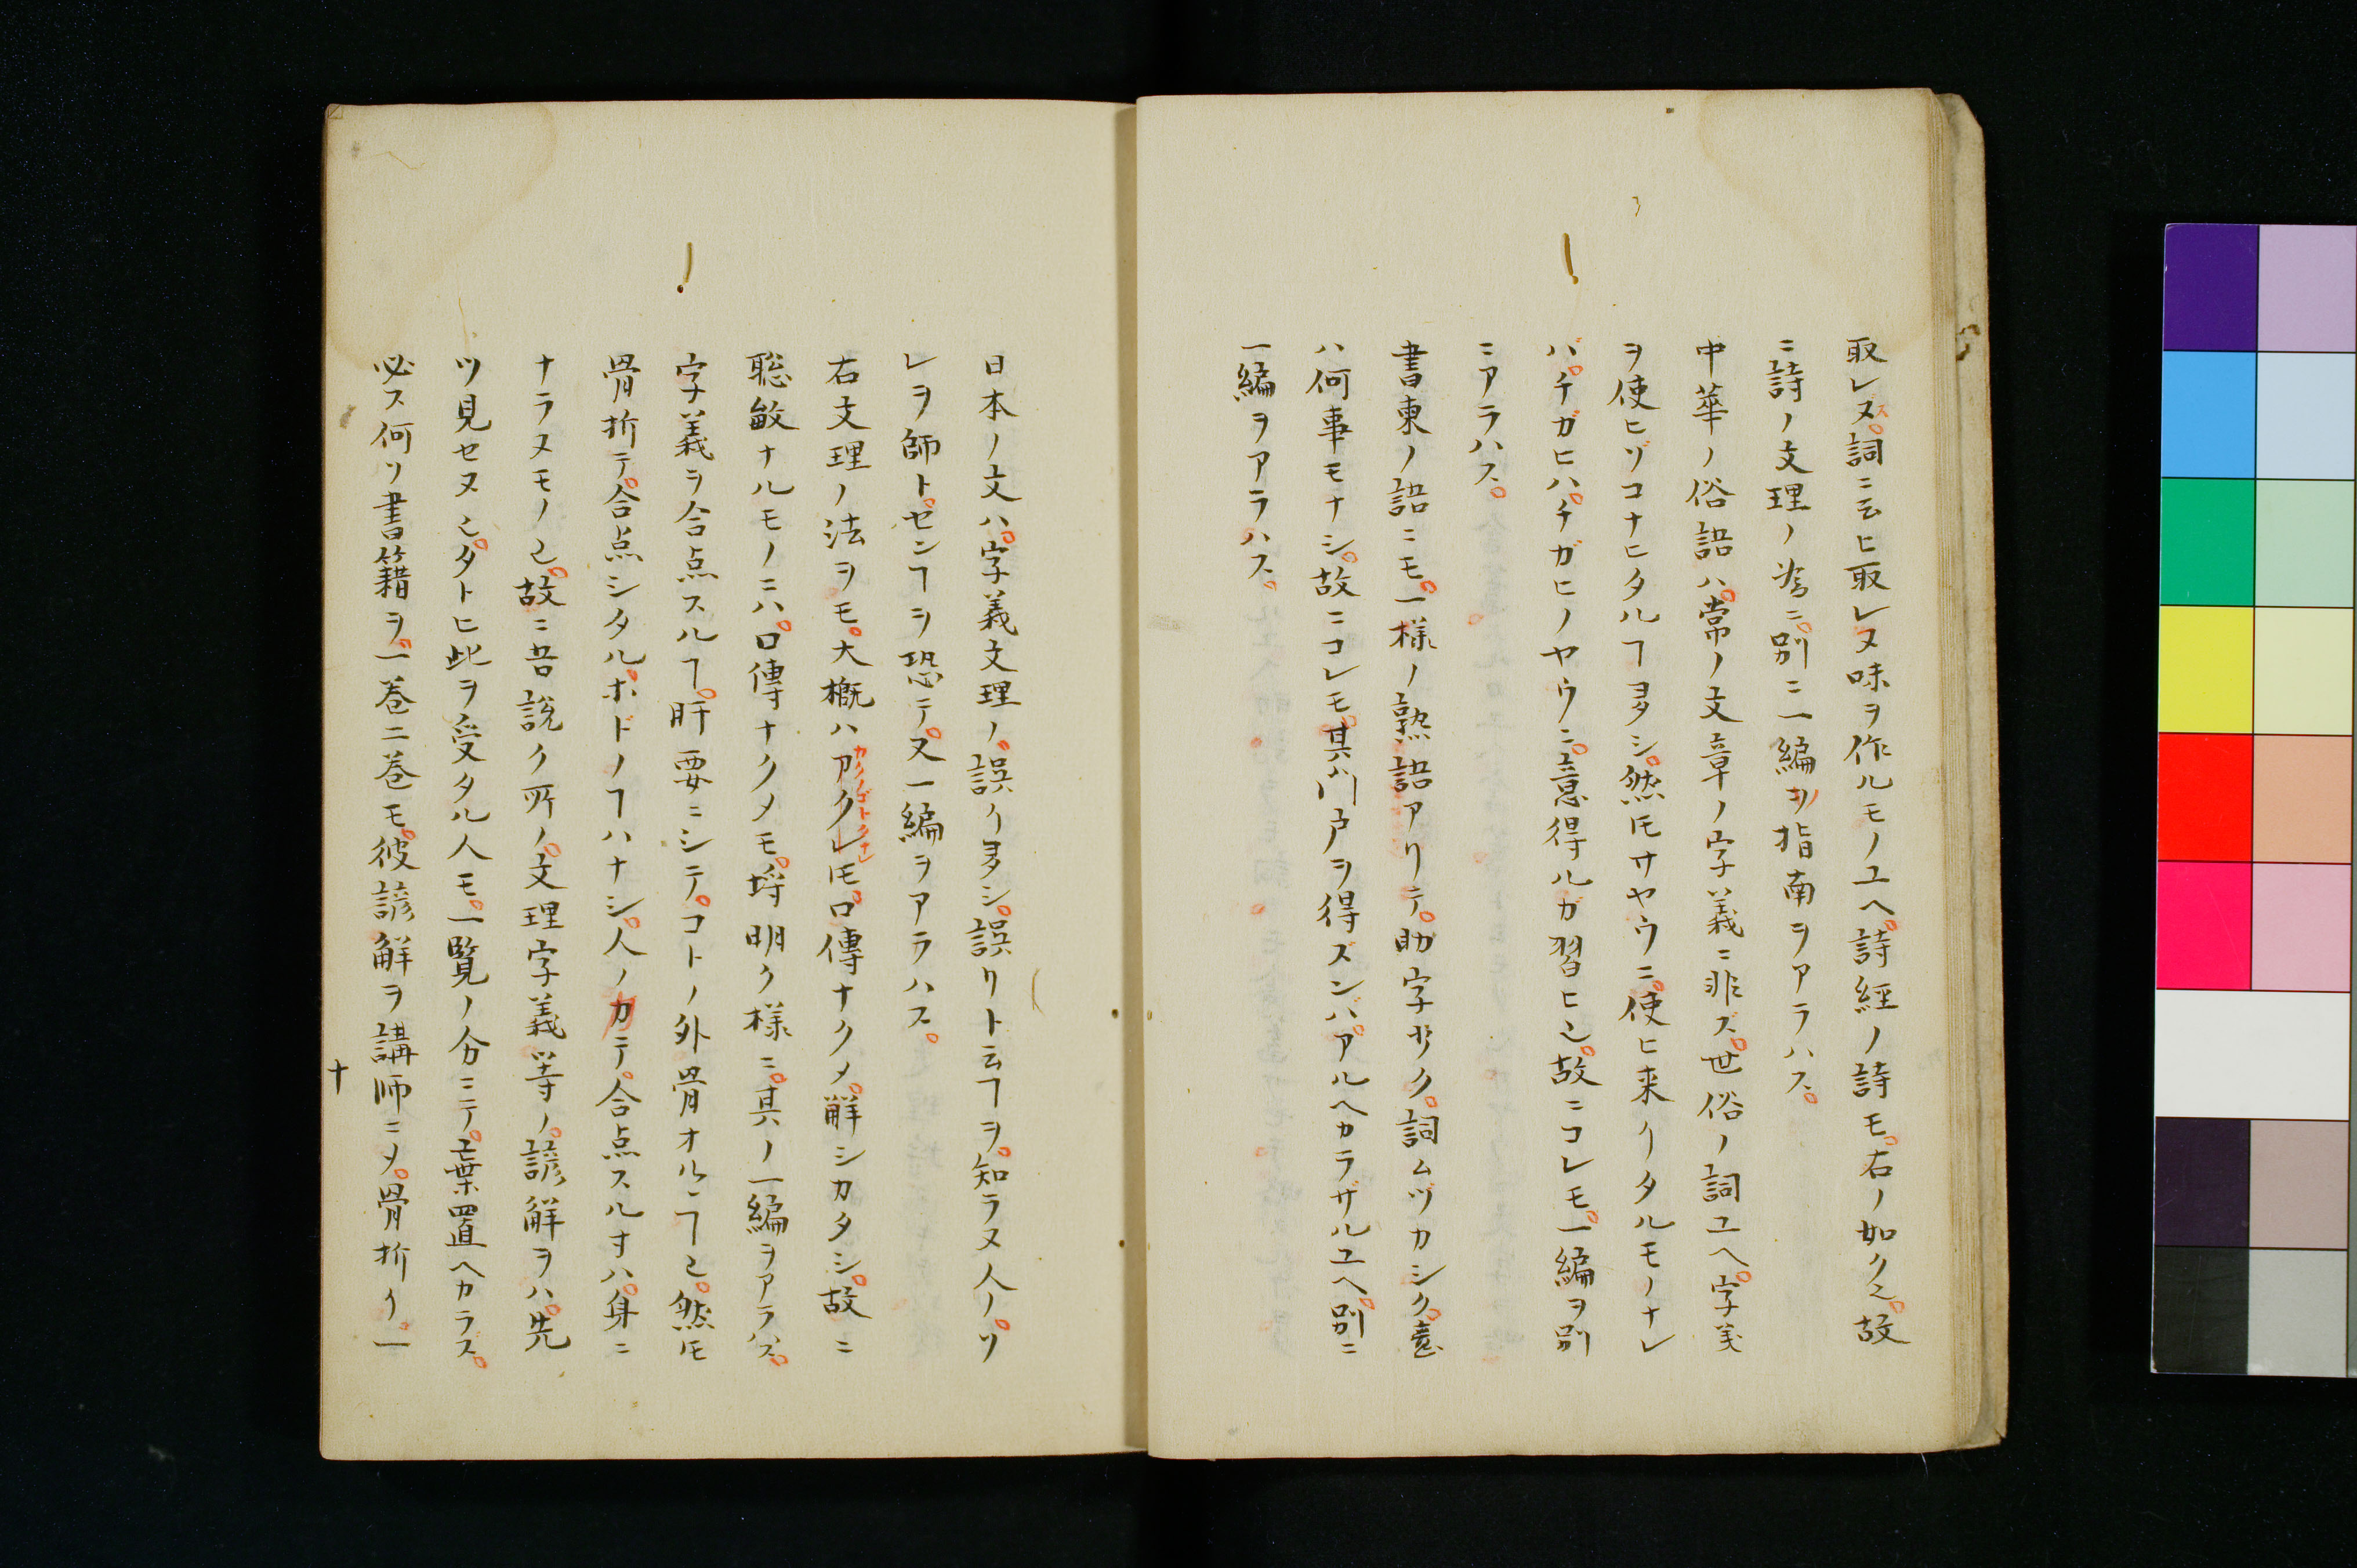 取レヌ。詞ニ云ヒ取レヌ味ヲ作ルモノユヘ。詩経ノ詩モ。右ノ如ク也。故
ニ詩ノ文理ノ為ニ。別ニ一編ヲ指南ヲアラハス。
中華ノ俗語ハ。常ノ文章ノ字義ニ非ズ。世俗ノ詞ユヘ。字義
ヲ使ヒソコナヒタルヿ多シ。然𪜈サヤウニ。使ヒ来リタルモノナレ
バ。チガヒハ。チガヒノヤウニ。意得ルガ習ヒ也。故ニコレモ。一編ヲ別
ニアラハス。
書柬ノ語ニモ。一様ノ熟語アリテ。助字多ク。詞ムヅカシク。意
ハ何事モナシ。故ニコレモ。其門戸ヲ得ズンバ。アルヘカラザルユヘ。別ニ
一編ヲアラハス。
日本ノ文ハ。字義文理ノ。誤リ多シ。誤リト云ヿヲ。知ラヌ人ノ。ソ
レヲ師トセンヿヲ恐テ。又一編ヲアラハス。
右文理ノ法ヲモ。大概ハアクレ𪜈。口傳ナクメ。解シカタシ。故ニ
カクノゴトクナレ
聡敏ナルモノニハ。口傳ナクメモ。埒明ク様ニ。其ノ一編ヲアラハス。
字義ヲ合点スルヿ。肝要ニシテ。コトノ外骨オルヽヿ也。然𪜈
骨折テ。合点シタルホドノヿハナシ。人ノカテ。合点スル寸ハ。身ニ
ナラヌモノ也。故ニ吾説ク所ノ。文理字義等ノ。諺解ヲハ。先
ツ見セヌ也。タトヒ此ヲ受タル人モ。一覧ノ分ニテ。棄置ヘカラズ。
必ス何ソ書籍ヲ。一巻二巻モ。彼諺解ヲ講師ニメ。骨折リ。一
十